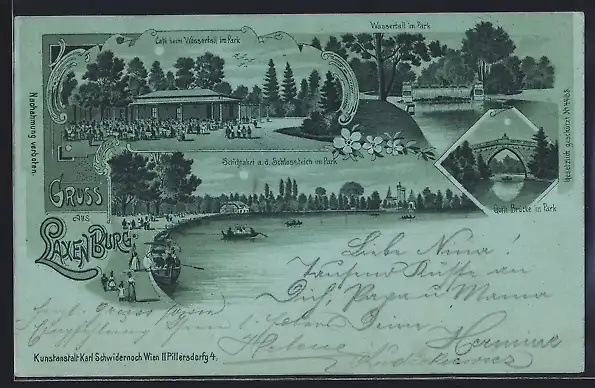 Café beim Wasserfall im Park
Wasserfall im Park
Nachahmung verboten.
Gesetzlich geschützt No 4468
Schiffahrt a. d. Schlossteich im Park
Goth. Brücke im Park
Gruss
aus
Laxenburg.
Liebe Nina!
Tausend Küße an
Dich, Papa u Mama
Deine Hermine
Helene
Kunstanstalt Karl Schwidernoch Wien II Pillersdorfg 4.